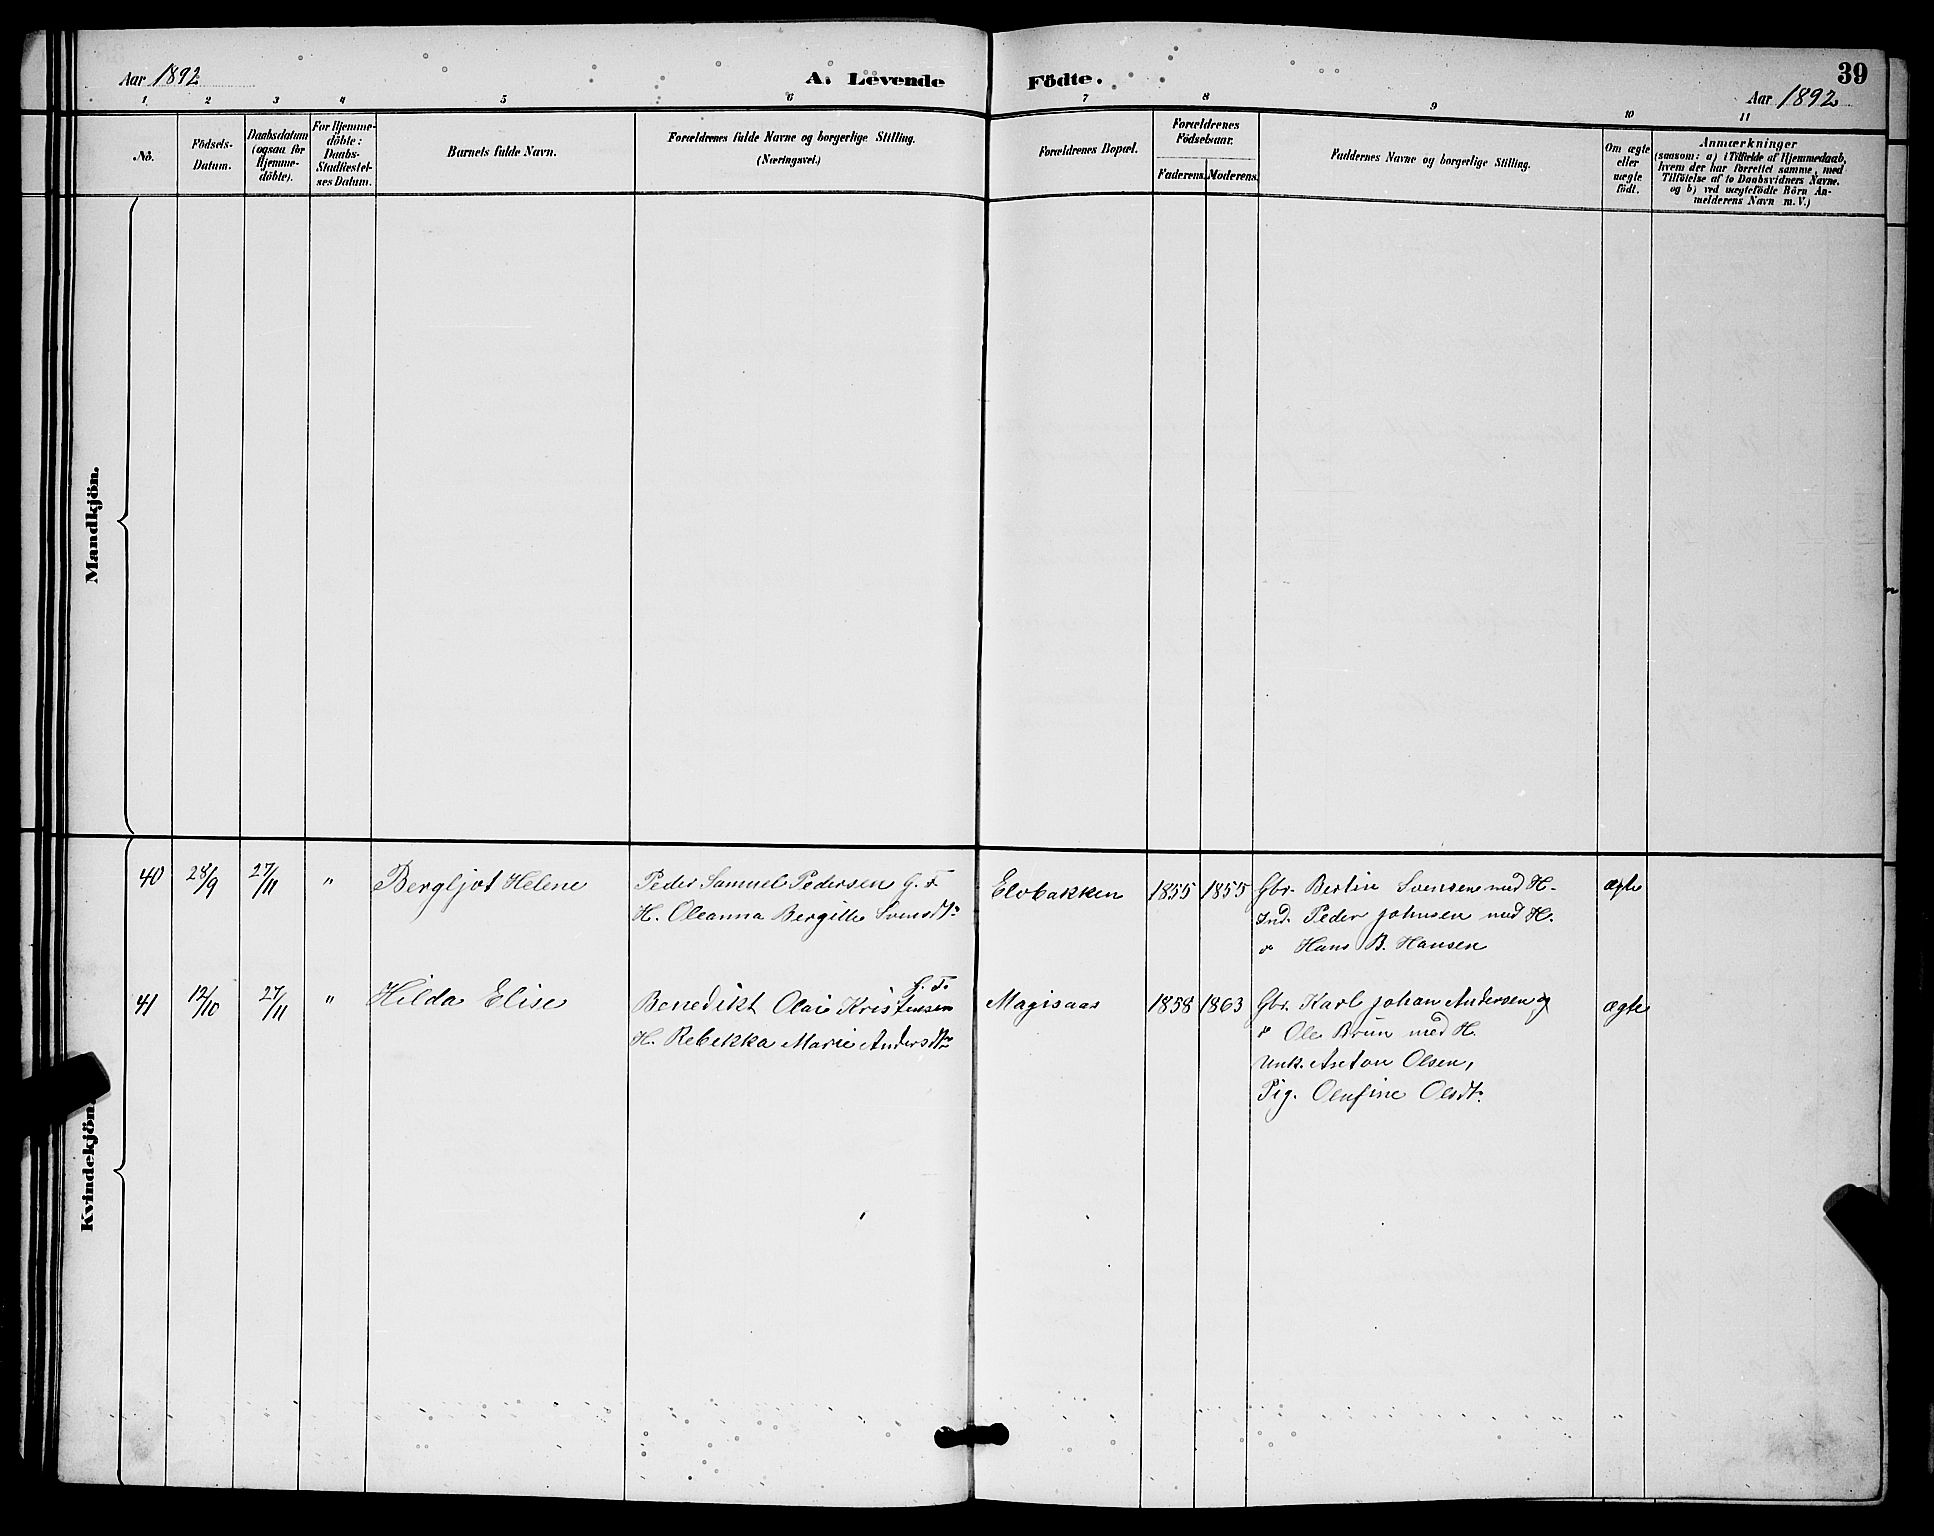 Aar 1892
A. Levende Födte.
39
Aar 1892
1 2 3 4 5 6 7 8 9 10 11
No.
Födsels-
Datum.
Daabsdatum
(ogsaa for
Hjemme-
döbte).
For Hjemme-
döbte:
Daabs-
Stadfæstel-
ses Datum.
Barnets fulde Navn.
Forældrenes fulde Navne og borgerlige Stilling.
(Næringsvei.)
Forældrenes Bopæl.
Forældrenes
Födselsaar.
Faderens. Moderens.
Faddernes Navne og borgerlige Stilling.
Om ægte
eller
uægte
födt.
Anmærkninger
(saasom: a) i Tilfælde af Hjemmedaab,
hvem der har forrettet samme, med
Tilföielse af to Daabsvidners Navne.
og b) ved uægtefödte Börn An-
melderens Navn m.V.)
Mandkjön.
Kvindekjön.
40 28/9 27/11 " Bergljot Helene Peder Samuel Pedersen G. F. Elvbakken 1855 1855 Gbr. Bertin Svensen med H. ægte
H. Oleanna Bergitte Svensdtr. Ind. Peder Johnsen med H.
" Hans B. Hansen
41 12/10 27/11 " Hilda Elise Benedikt Olai Kristensen G. F. Magisaas 1858 1863 Gbr. Karl Johan Andersen og ægte
H. Rebekka Marie Andersdtr " Ole Brun med H.
Unk. Anton Olsen,
Pig. Olufine Olsdtr.